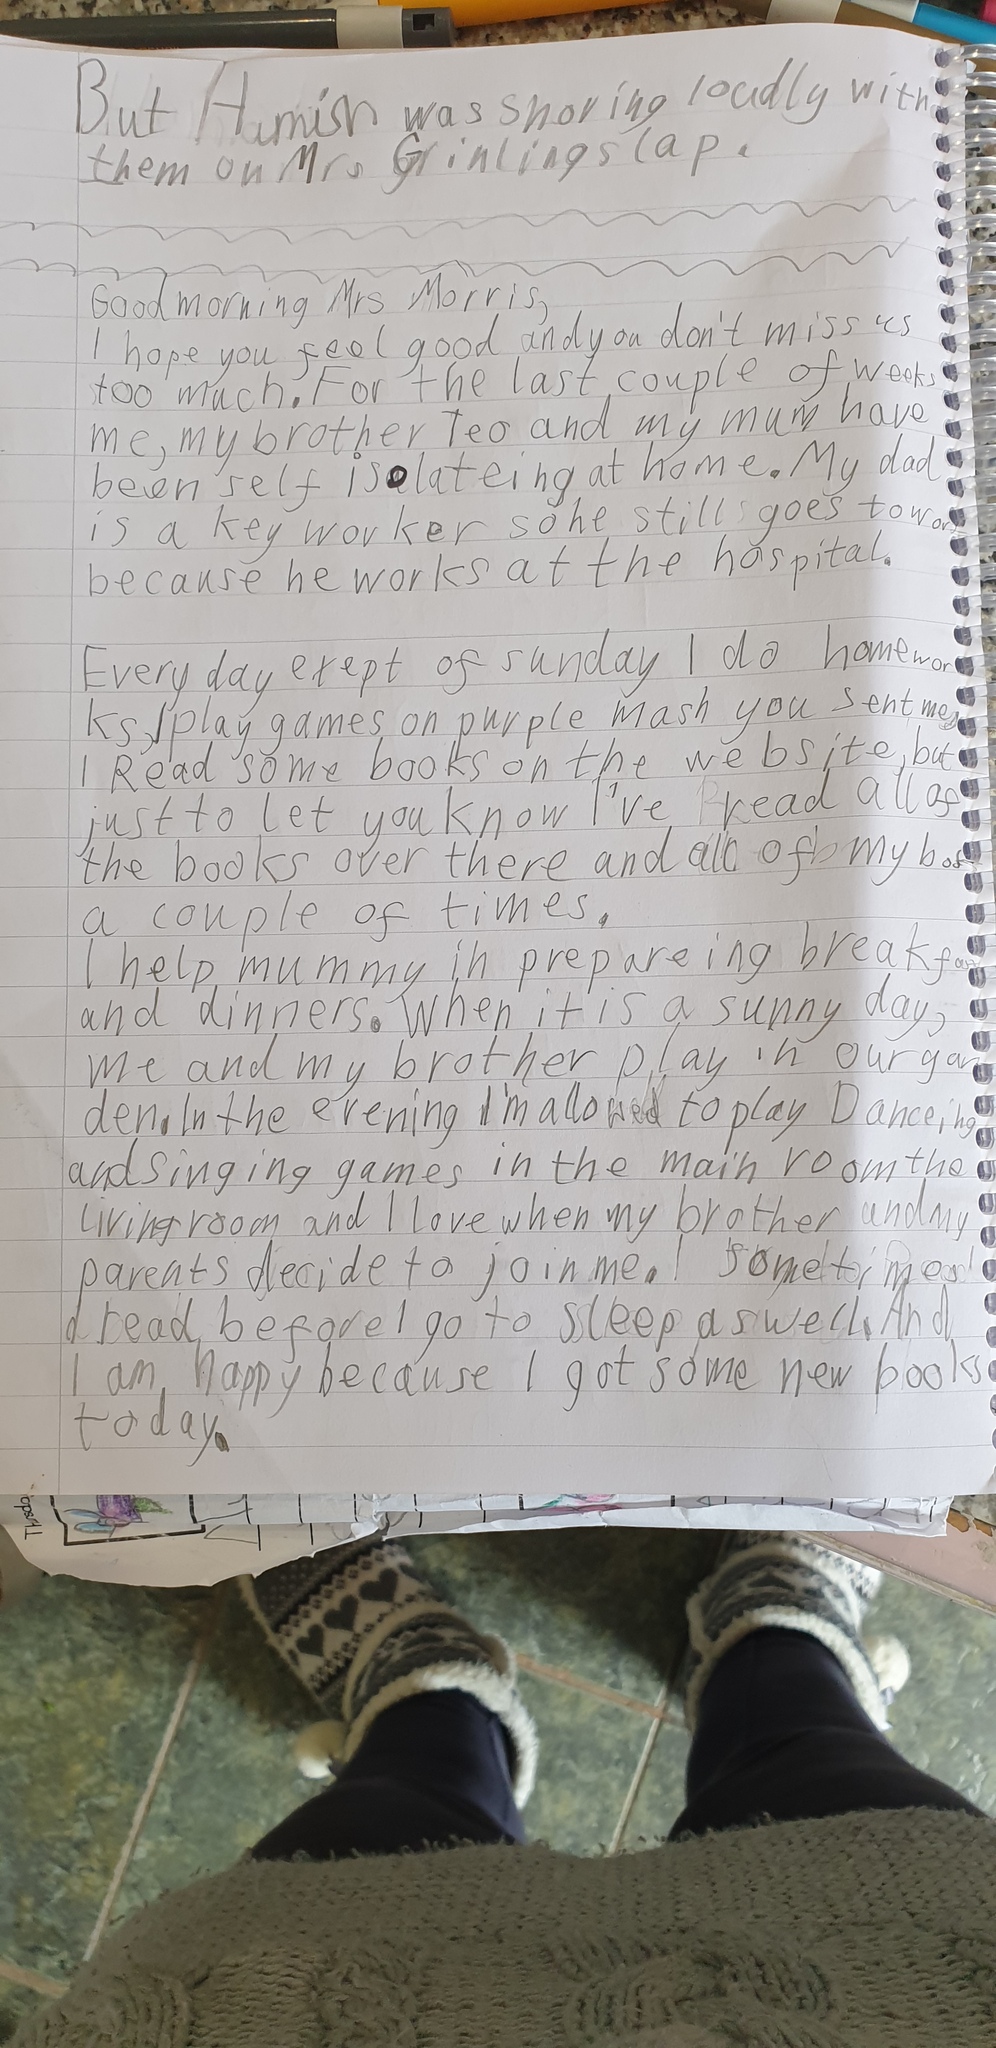 But Hamish was snoring loudly with
them on Mrs Grinlings lap.
Good morning Mrs Morris,
I hope you feel good and you don't miss us
too much. For the last couple of weeks
me, my brother Teo and my mum have
been self isolateing at home. My dad
is a key worker so he still goes to wor
because he works at the hospital.
Every day exept of sunday I do homewor
ks, I play games on purple mash you sent me,
I Read some books on the website, but
just to let you know I've read all of
the books over there and all of my boo
a couple of times.
I help mummy in prepareing breakfas
and dinners. When it is a sunny day,
me and my brother play in our gar
den. In the evening I'm allowed to play Danceing
and singing games in the main room the
living room and I love when my brother and my
parents decide to join me. I sometimes
read before I go to sleep as well. And
I am happy because I got some new books
today.